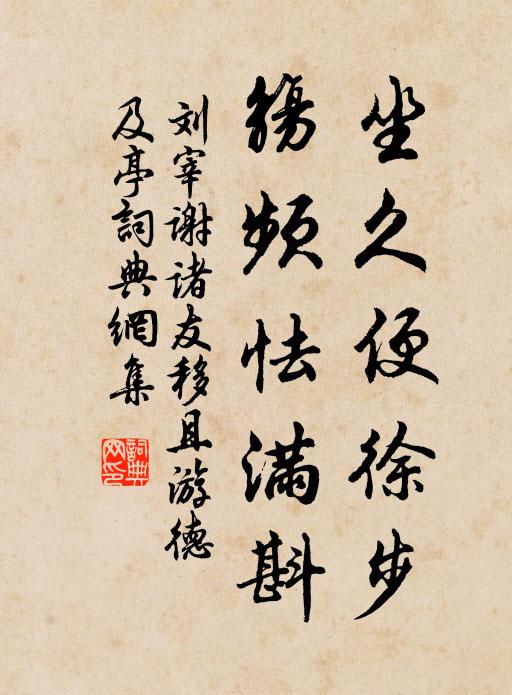 坐久便徐步
觴频怯满斟
刘宰谢诸友移具游德
及亭詞典網集
詞典網印